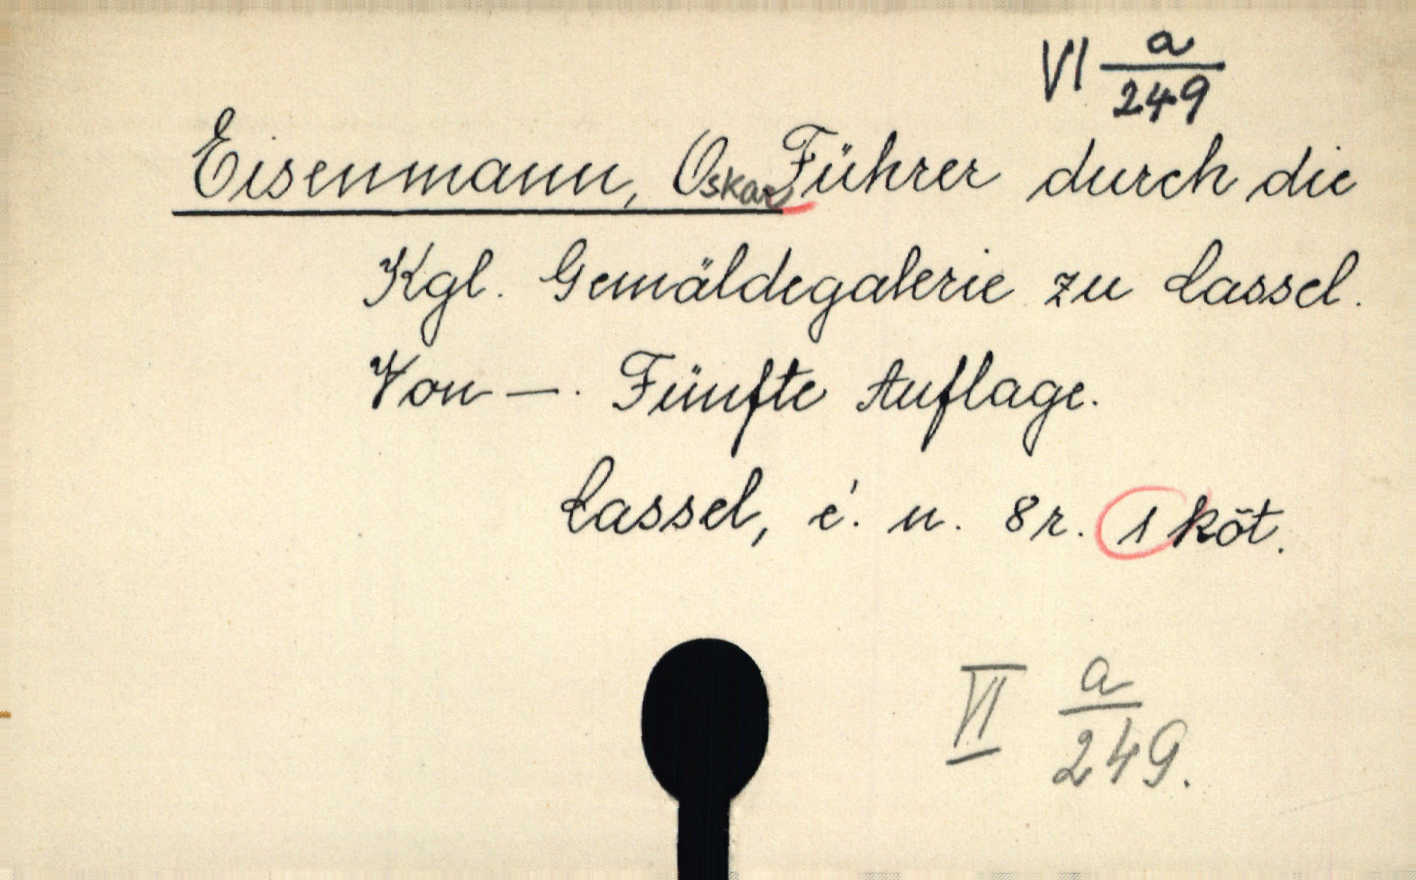 VI a/249
Eisenmann, Oskar Führer durch die
Kgl. Gemäldegalerie zu Cassel.
Von —. Fünfte Auflage.
Cassel, é. n. 8r. 1 köt.
VI a/249.